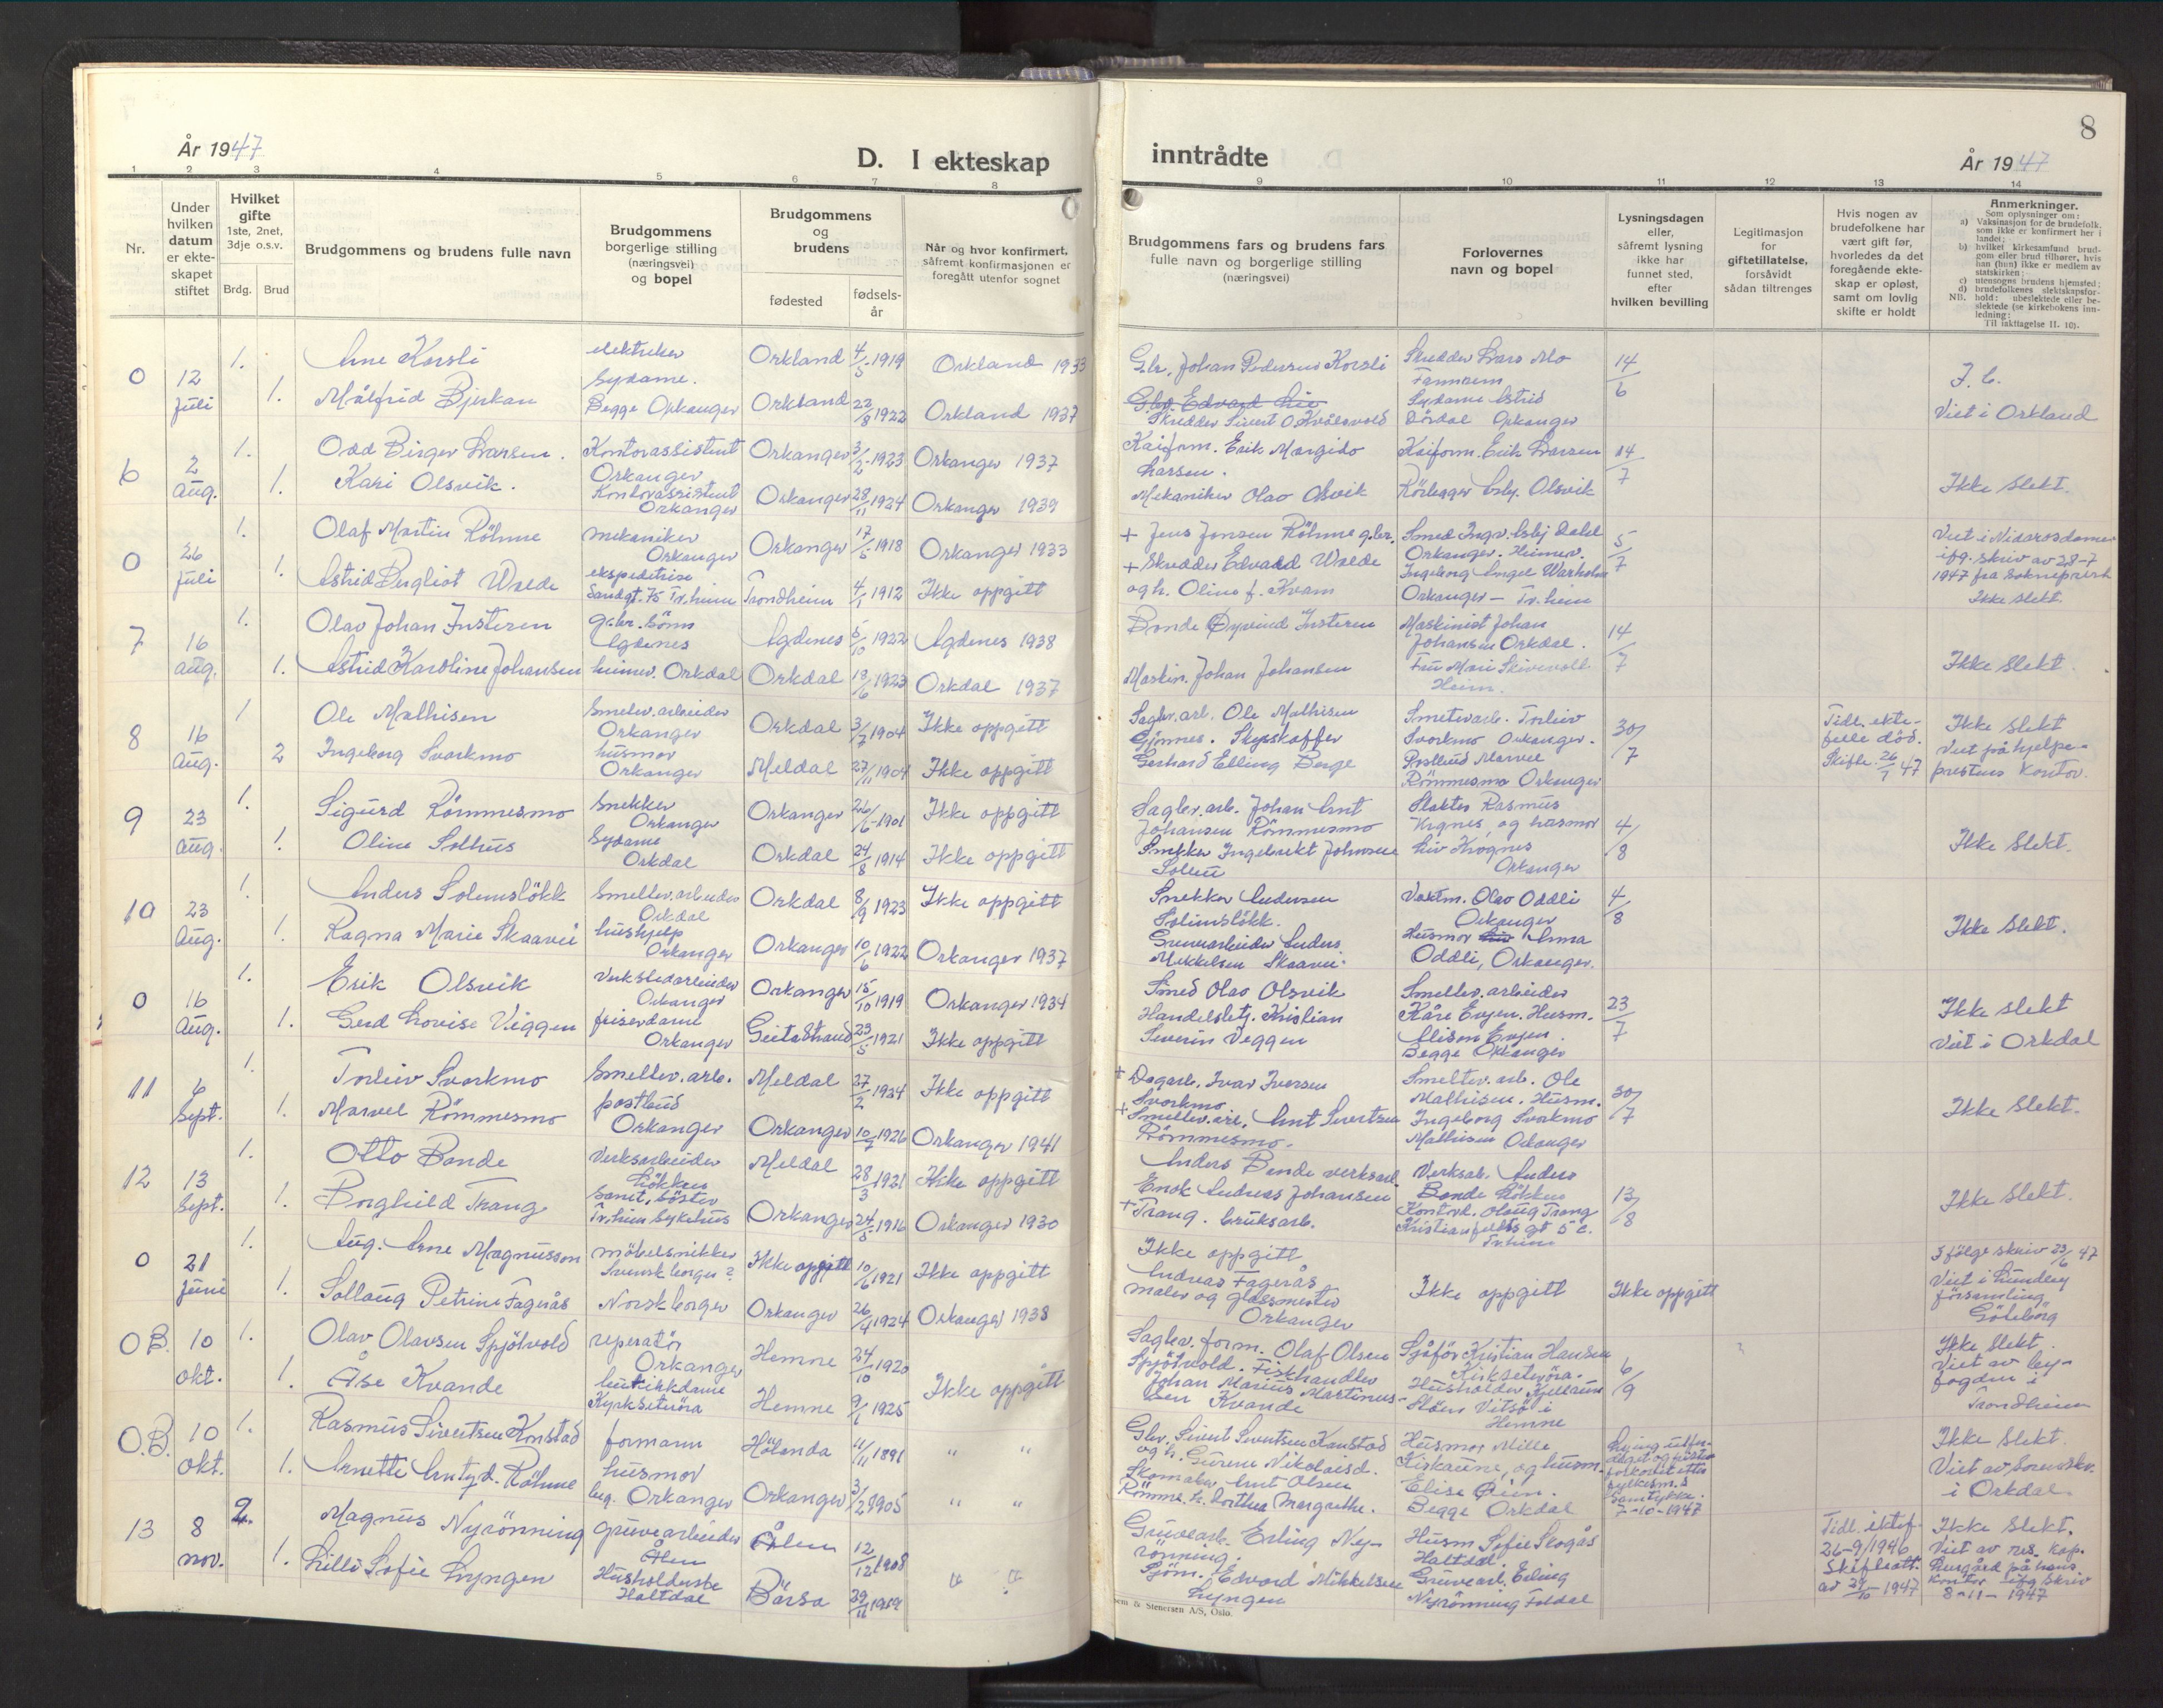 8
År 1947
D. I ekteskap
inntrådte
År 1947
1 2 3 4 5 6 7 8 9 10 11 12 13 14
Nr.
Under hvilken datum er ekteskapet stiftet
Hvilket gifte
1ste, 2net, 3dje o.s.v.
Brdg. Brud
Brudgommens og brudens fulle navn
Brudgommens borgerlige stilling (næringsvei) og bopel
Brudgommens og brudens
fødested
fødsels-år
Når og hvor konfirmert, såfremt konfirmasjonen er foregått utenfor sognet
Brudgommens fars og brudens fars fulle navn og borgerlige stilling (næringsvei)
Forlovernes navn og bopel
Lysningsdagen eller, såfremt lysning ikke har funnet sted, efter hvilken bevilling
Legitimasjon for giftetillatelse, forsåvidt sådan tiltrenges
Hvis nogen av brudefolkene har vært gift før, hvorledes da det foregående ekteskap er opløst, samt om lovlig skifte er holdt
Anmerkninger.
Som oplysninger om:
a) Vaksinasjon for de brudefolk, som ikke er konfirmert her i landet;
b) hvilket kirkesamfund brudgom eller brud tilhører, hvis han (hun) ikke er medlem av statskirken;
c) utensogns brudens hjemsted;
d) brudefolkenes slektskapsforhold: ubeslektede eller beslektede (se kirkebokens innledning; Til iakttagelse II. 10).
NB.
0 12 Juli 1. Arne Korsli elektriker Orkland 4/5 1919 Orkland 1933 Gbr. Johan Pedersen Korsli Skredder Lars Mo Fannrem 14/6
1. Målfrid Bjerkan Sydame. Begge Orkanger Orkland 22/8 1922 Orkland 1937 Skredder Sivert O. Sydame Astrid Dördal Orkanger Viet i Orkland
6 2 Aug. 1. Odd Birger Larsen. Kontorassistent Orkanger Orkanger 3/2 1923 Orkanger 1937 Kaiform. Erik Margido Larsen. Kaiform. Erik Larsen 14/7
1. Kari Olsvik. Kontorassistent Orkanger Orkanger 28/11 1924 Orkanger 1939 Mekaniker Olav Olsvik Rörlegger Asbj. Olsvik Ikke Slekt.
0 26 Juli 1. Olaf Martin Röhme mekaniker Orkanger Orkanger 17/5 1918 Orkanger 1933 + Jens Jonsen Röhme gbr. Smed Ingv. Asbj Dahl Orkanger. 5/7 Viet i Nidarosdomen ifg. skriv av 28-7 1947 fra Sokneprest
1. Astrid Bergliot Wæde ekspeditrise Sandgt. 75 Tr.heim Trondheim 4/1 1912 Ikke oppgitt + Skredder Edvard Wæde og h. Oline f. Kvam Ingeborg Inger Warholm Orkanger – Tr.heim Ikke slekt.
7 16 Aug. 1. Olav Johan Insteren gbr. sönn Agdenes Agdenes 5/10 1922 Agdenes 1938 Bonde Øyvind Insteren Maskinist Johan Johansen Orkdal. 14/7
1. Astrid Karoline Johansen heimev. Orkdal Orkdal 18/6 1923 Orkdal 1937 Maskin. Johan Johansen Fru Mari Heim. Ikke Slekt.
8 16 Aug. 1 Ole Mathisen Smeltv. arbeider Orkanger Orkdal 3/7 1904 Ikke oppgitt Sagbr. arb. Ole Mathisen Smelterarb. Torleiv Svorkmo Orkanger. 30/7 Tidl. ektefelle död. Skifte 26/7 47 Ikke Slekt
2 Ingeborg Svorkmo husmor Orkanger Meldal 27/11 1904 Ikke oppgitt Gerhard Elling Berge Postbud Marvel Römmesmo Orkanger Viet på hjelpeprestens kontor.
9 23 Aug. 1. Sigurd Römmesmo Snekker Orkanger Orkanger 26/6 1901 Ikke oppgitt Sagbr. arb. Johan Arnt Johansen Römmesmo Slakter Rasmus Krognes, og husmor 4/8
1. Oline Solhus Sydame Orkdal Orkdal 24/8 1914 Ikke oppgitt Snekker Ingebrekt Johnsen Liv Krognes Orkanger Ikke Slekt.
10 23 Aug. 1. Anders Solemslökk Smeltev. arbeider Orkdal Orkdal 8/9 1923 Ikke oppgitt Snekker Andersen Solemslökk. Vaktm. Olav Oddli Orkanger 4/8
1. Ragna Marie Skaavii hushjelp Orkanger Orkanger 10/6 1922 Orkanger 1937 Gruvearbeider Anders Mikkelsen Skaavii. Husmor Anna Oddli, Orkanger. Ikke Slekt.
0 16 Aug. 1. Erik Olsvik Verkstedarbeider Orkanger Orkanger 15/10 1919 Orkanger 1934 Smed Olav Olsvik Smeltev. arbeider Kåre Evjen. Husm. 23/7 Ikke Slekt
1. Gerd Lovise Viggen friserdame Orkanger Geitastrand 23/5 1921 Ikke oppgitt Handelsbetj. Kristian Severin Veggen Alison Evjen. Begge Orkanger Viet i Orkdal
11 6 Sept. 1. Torleiv Svorkmo Smeltev. arb. Meldal 27/2 1924 Ikke oppgitt + Dagarb. Ivar Iversen Svorkmo Smeltev. arb. Ole Mathisen. Husm. 30/7
1. Marvel Römmesmo postbud Orkanger Orkanger 10/7 1926 Orkanger 1941 + Smeltev. arb. Arnt Sivertsen Römmesmo. Ingeborg Svorkmo Mathisen Orkanger Ikke Slekt.
12 13 Sept. 1. Otto Bonde Verksarbeider Lökken Meldal 28/3 1921 Ikke oppgitt Anders Bonde verksarb. Verksab. Anders Bonde Lökken 13/8
1. Borghild Trang Sanit. söster Tr.heim Sykehus Orkanger 24/5 1916 Orkanger 1930 + Enok Andreas Johansen Trang. bruksarb. Kontord. Olaug Trang Kristianfeldts gt 5 c. Tr.heim Ikke Slekt.
0 21 Juni 1. Aug. Arne Magnusson möbelsnikker Svensk borger? Ikke oppgitt 10/6 1921 Ikke oppgitt Ikke oppgitt Ikke oppgitt Ikke oppgitt Ifölge skriv 23/6 47
1. Sollaug Petrine Fagerås Norsk borger Orkanger 26/4 1924 Orkanger 1938 Andreas Fagerås maler og glasmester Orkanger Viet i Lundby församling Göteborg
O B. 10 okt. 1. Olav Olavsen Spjötvold reperatör Orkanger Hemne 24/10 1920 Sagbr. form. Olaf Olsen Spjötvold. Fiskhandler Sjåför Kristian Hansen Kirksæteröra. 6/9 Ikke Slekt.
1. Åse Kvande butikkdame Kyrksæteröra Hemne 9/1 1925 Ikke oppgitt Johan Marius Martinussen Kvande Vitsö i Hemne Viet av byfogden i Trondheim
O.B. 10 okt. 1. Rasmus Sivertsen Konstad formann Hölonda 11/11 1891 " " Gbr. Sivert Sivertsen Konstad og h. Gurine Nikolaisd. Husmor Mille Kiskaune, og husm. Ikke Slekt.
1. Arnetti Arntsd. Röhme husmor beg. Orkanger Orkanger 3/2 1905 " " Skomaker Arnt Olsen Römme. h. Dorthea Margrethe. Elise Begge Orkdal Samtykke. 7-10-1947 Viet av Sorenskr. i Orkdal.
13 8 nov. 2. Magnus Nyrönning gruvearbeider Ålen Ålen 12/12 1908 Gruvearb. Erling Nyrönning. Husm. Sofie Skogås Haltdal Tidl. ektef. 26-9/1946 Skifteatt. av 29/10 1947 Ikke Slekt.
1. Lilli Sofie Lyngen Husholderske Haltdal Börsa 29/11 " " Sjöm. Edvard Mikkelsen Lyngen Gruvearb. Erling Nyrönning Foldal Viet av res. kap. på hans kontor ifg. skriv 8-11-1947
& Stenersen A/S, Oslo.